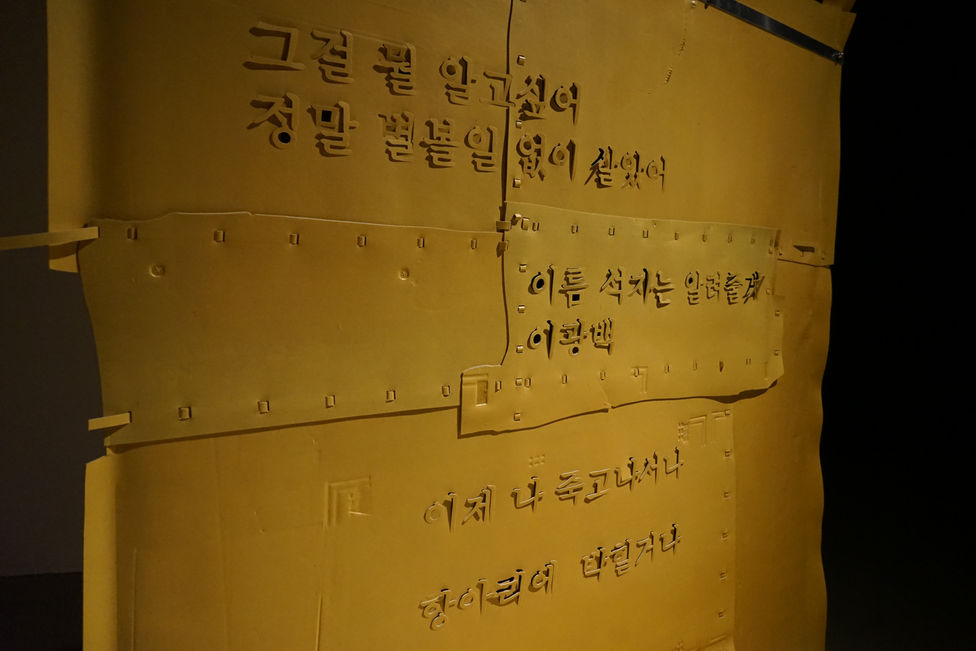 그걸 뭘 알고싶어
정말 별볼일 없이 살았어
이름 석자는 알려줄게
이광백
이제 나 죽고나서나
박힐거나